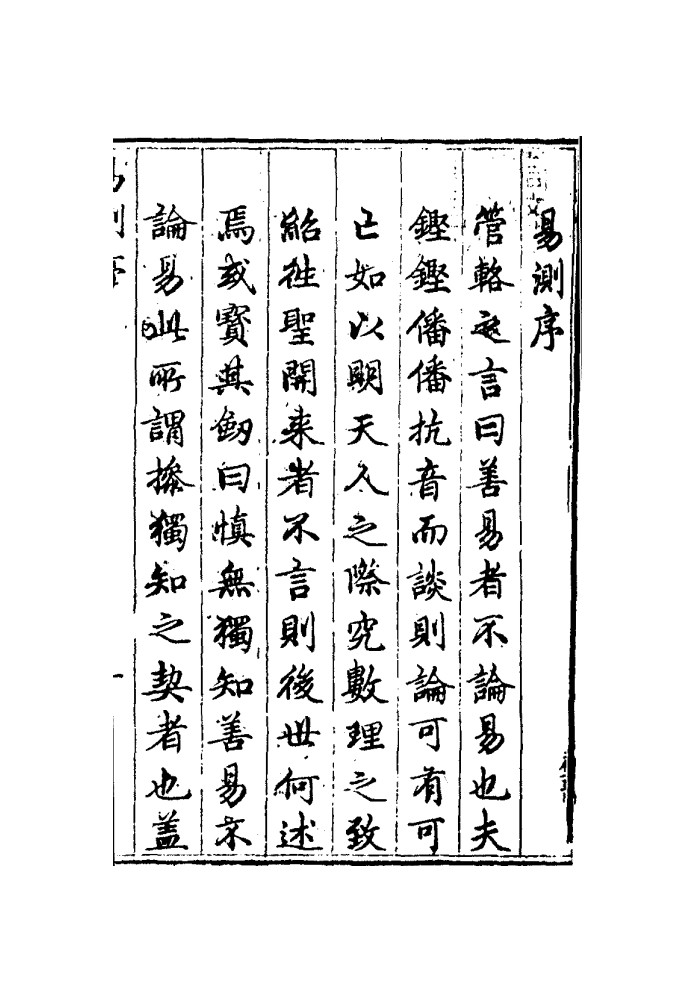 易測序
管輅之言曰善易者不論易也夫
鏗鏗僠僠抗音而談則論可有可
已如以明天人之際究數理之致
紹徃聖開来者不言則後世何述
焉或寳其劒曰慎無獨知善易不
論易此所謂操獨知之契者也盖
易測序
一